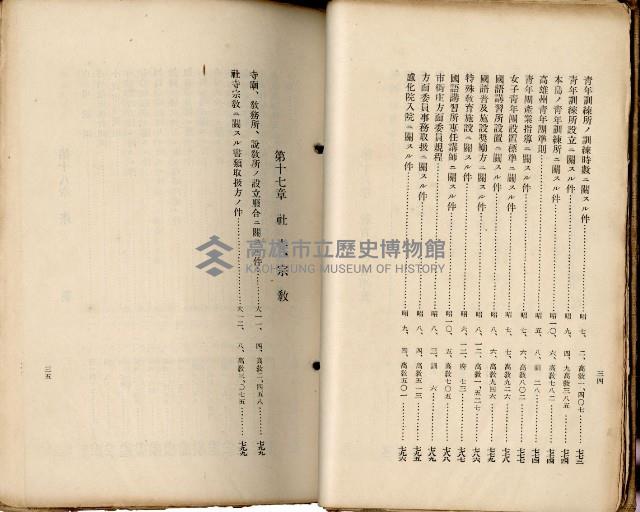 青年訓練所ノ訓練時數ニ關スル件……昭 七、二、高教一、四〇七……七七三
青年訓練所設立ニ關スル件……昭 九、四、九高教三八五……七七四
本島ノ青年訓練所ニ關スル件……昭一〇、六、高教七八二……七七四
高雄州青年團準則……昭 五、八、訓 二八……七七四
青年團產業指導ニ關スル件……昭 八、六、高教八〇二……七七八
女子青年團設置標準ニ關スル件……昭 七、七、高教九二六……七七八
國語講習所設置ニ關スル件……昭 八、六、高教九四六……七七九
國語普及施設獎勵方ニ關スル件……昭 八、一二、高教一、五二七……七八六
特殊教育施設ニ關スル件……昭 六、一二、府 七三……七八七
國語講習所專任講師ニ關スル件……昭一〇、五、高教七〇五……七八八
市街庄方面委員規程……昭 八、三、訓 六……七八九
方面委員事務取扱ニ關スル件……昭 八、四、高教五一三……七九五
感化院入院ニ關スル件……昭 九、四、高教五〇一……七九六
三四
第十七章 社 宗 教
寺廟、教務所、說教所ノ設立廢合ニ關 件……大一一、四、高教三、四五八……七九九
社寺宗教ニ關スル書類取扱方ノ件……大一二、八、高教三、〇七五……七九九
三五
高雄市立歷史博物館
KAOHSIUNG MUSEUM OF HISTORY